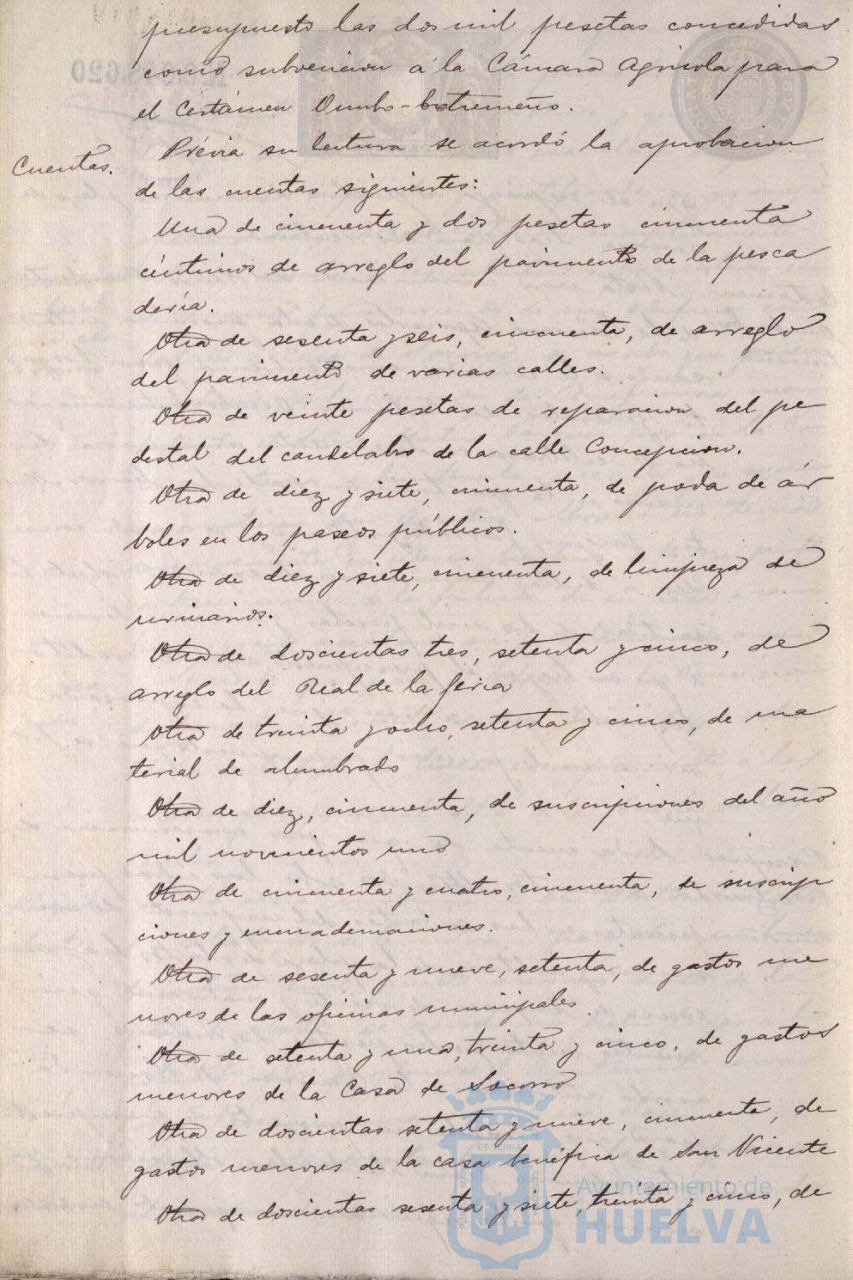 presupuesto las dos mil pesetas concedidas
como subvencion á la Cámara Agrícola para
el Certámen Onubo-Extremeño.
Cuentas.
Prévia su lectura se acordó la aprobacion
de las cuentas siguientes:
Una de cincuenta y dos pesetas cincuenta
céntimos de arreglo del pavimento de la pesca
dería.
Otra de sesenta y seis, cincuenta, de arreglo
del pavimento de varias calles.
Otra de veinte pesetas de reparacion del pe
destal del candelabro de la calle Concepcion.
Otra de diez y siete, cincuenta, de poda de ár
boles en los paseos públicos.
Otra de diez y siete, cincuenta, de limpieza de
urinarios.
Otra de doscientas tres, setenta y cinco, de
arreglo del Real de la feria
Otra de treinta y ocho, setenta y cinco, de ma
terial de alumbrado
Otra de diez, cincuenta, de suscripciones del año
mil novecientos uno
Otra de cincuenta y cuatro, cincuenta, de suscrip
ciones y encuadernaciones.
Otra de sesenta y nueve, setenta, de gastos me
nores de las oficinas municipales
Otra de setenta y una, treinta y cinco, de gastos
menores de la Casa de Socorro
Otra de doscientas setenta y nueve, cincuenta, de
gastos menores de la casa benéfica de San Vicente
Otra de doscientas sesenta y siete, treinta y cinco, de
Ayuntamiento de
HUELVA